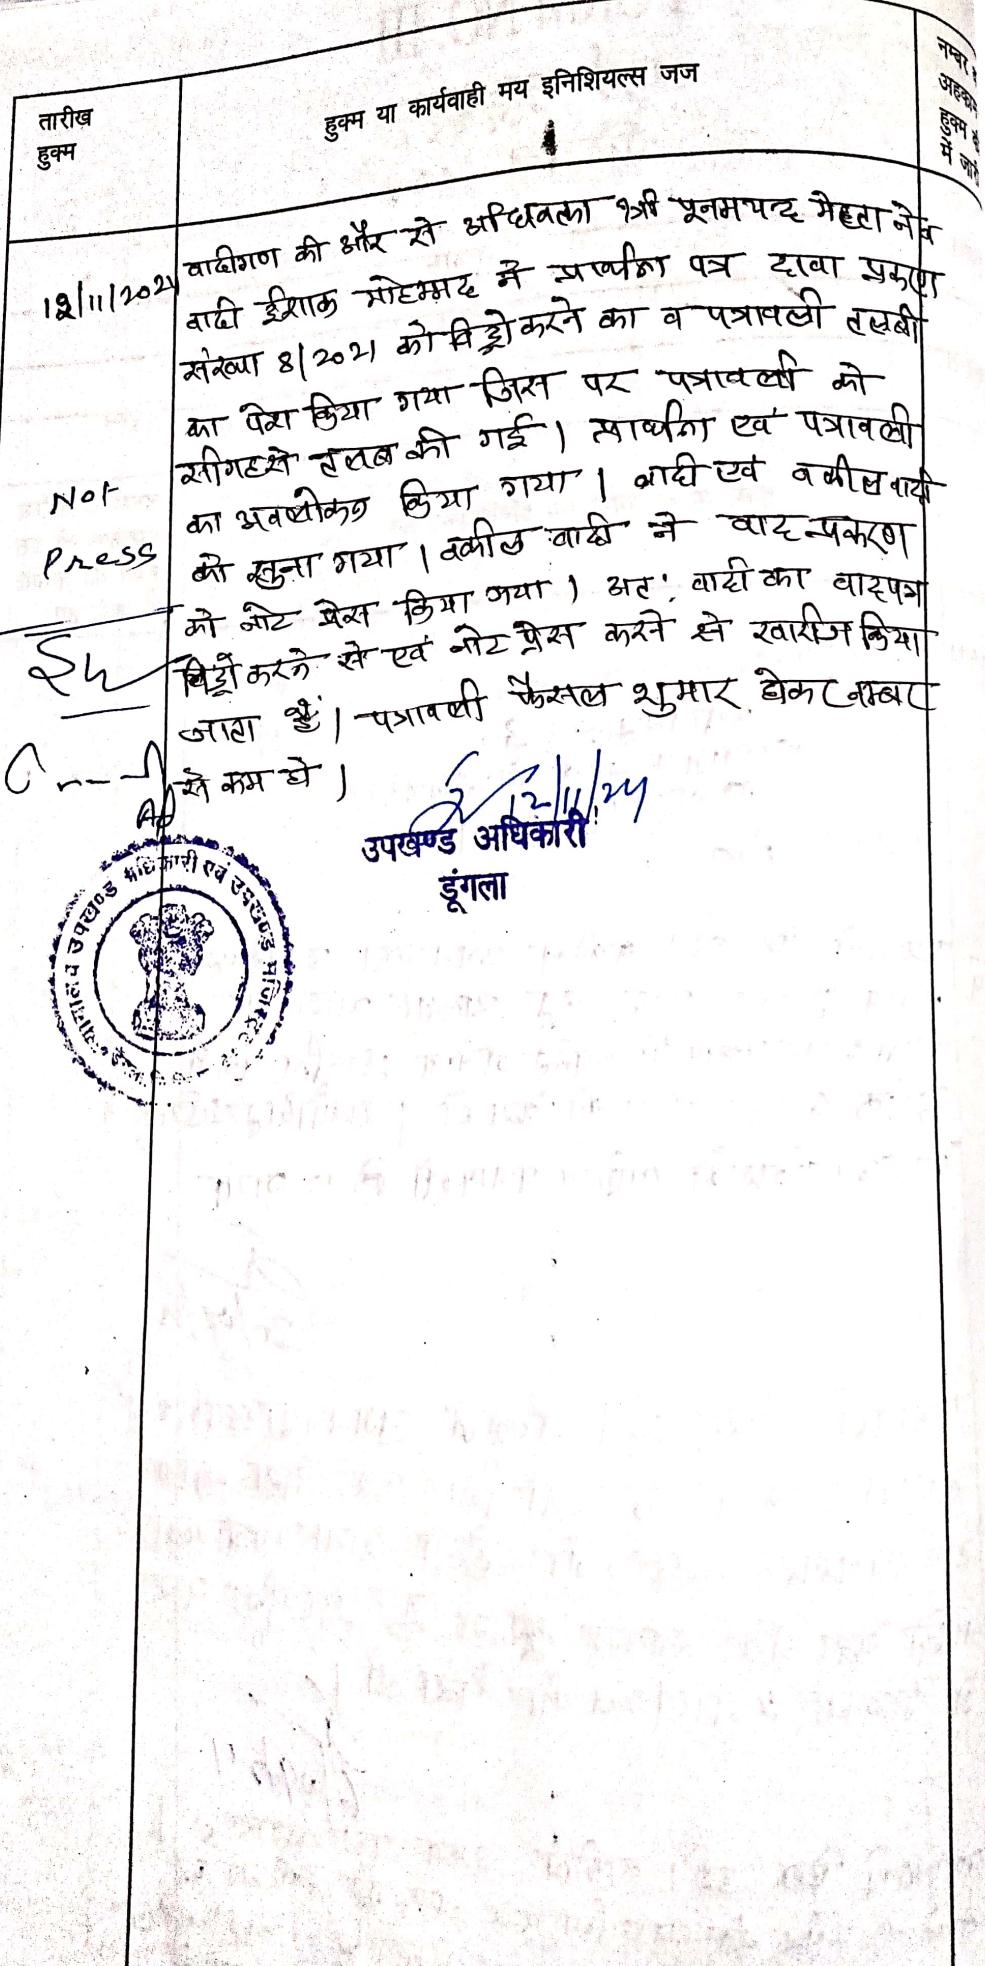 तारीख
हुक्म
हुक्म या कार्यवाही मय इनिशियल्स जज
नम्बर
अहकाम
हुक्म
में जारी
12/11/2024
वादीगण की और से अधिवक्ता श्री पूनमचन्द मेहता ने व
वादी ईशाक मोहम्मद ने प्रार्थना पत्र दावा प्रकरण
संख्या 8/2021 को विड्रो करने का व पत्रावली तलबी
का पेश किया गया जिस पर पत्रावली को
सीगहसे तलब की गई। प्रार्थना एवं पत्रावली
का अवलोकन किया गया। वादी एवं वकील वादी
को सुना गया। वकील वादी ने वाद प्रकरण
को नोट प्रेस किया गया। अतः वादी का वादपत्र
विड्रो करने से एवं नोट प्रेस करने से खारीज किया
जाता है। पत्रावली फैसल शुमार होकर नम्बर
से कम हो।
Not
Press
12/11/24
उपखण्ड अधिकारी
डूंगला
न्यायालय उपखण्ड अधिकारी एवं उपखण्ड मजिस्ट्रेट